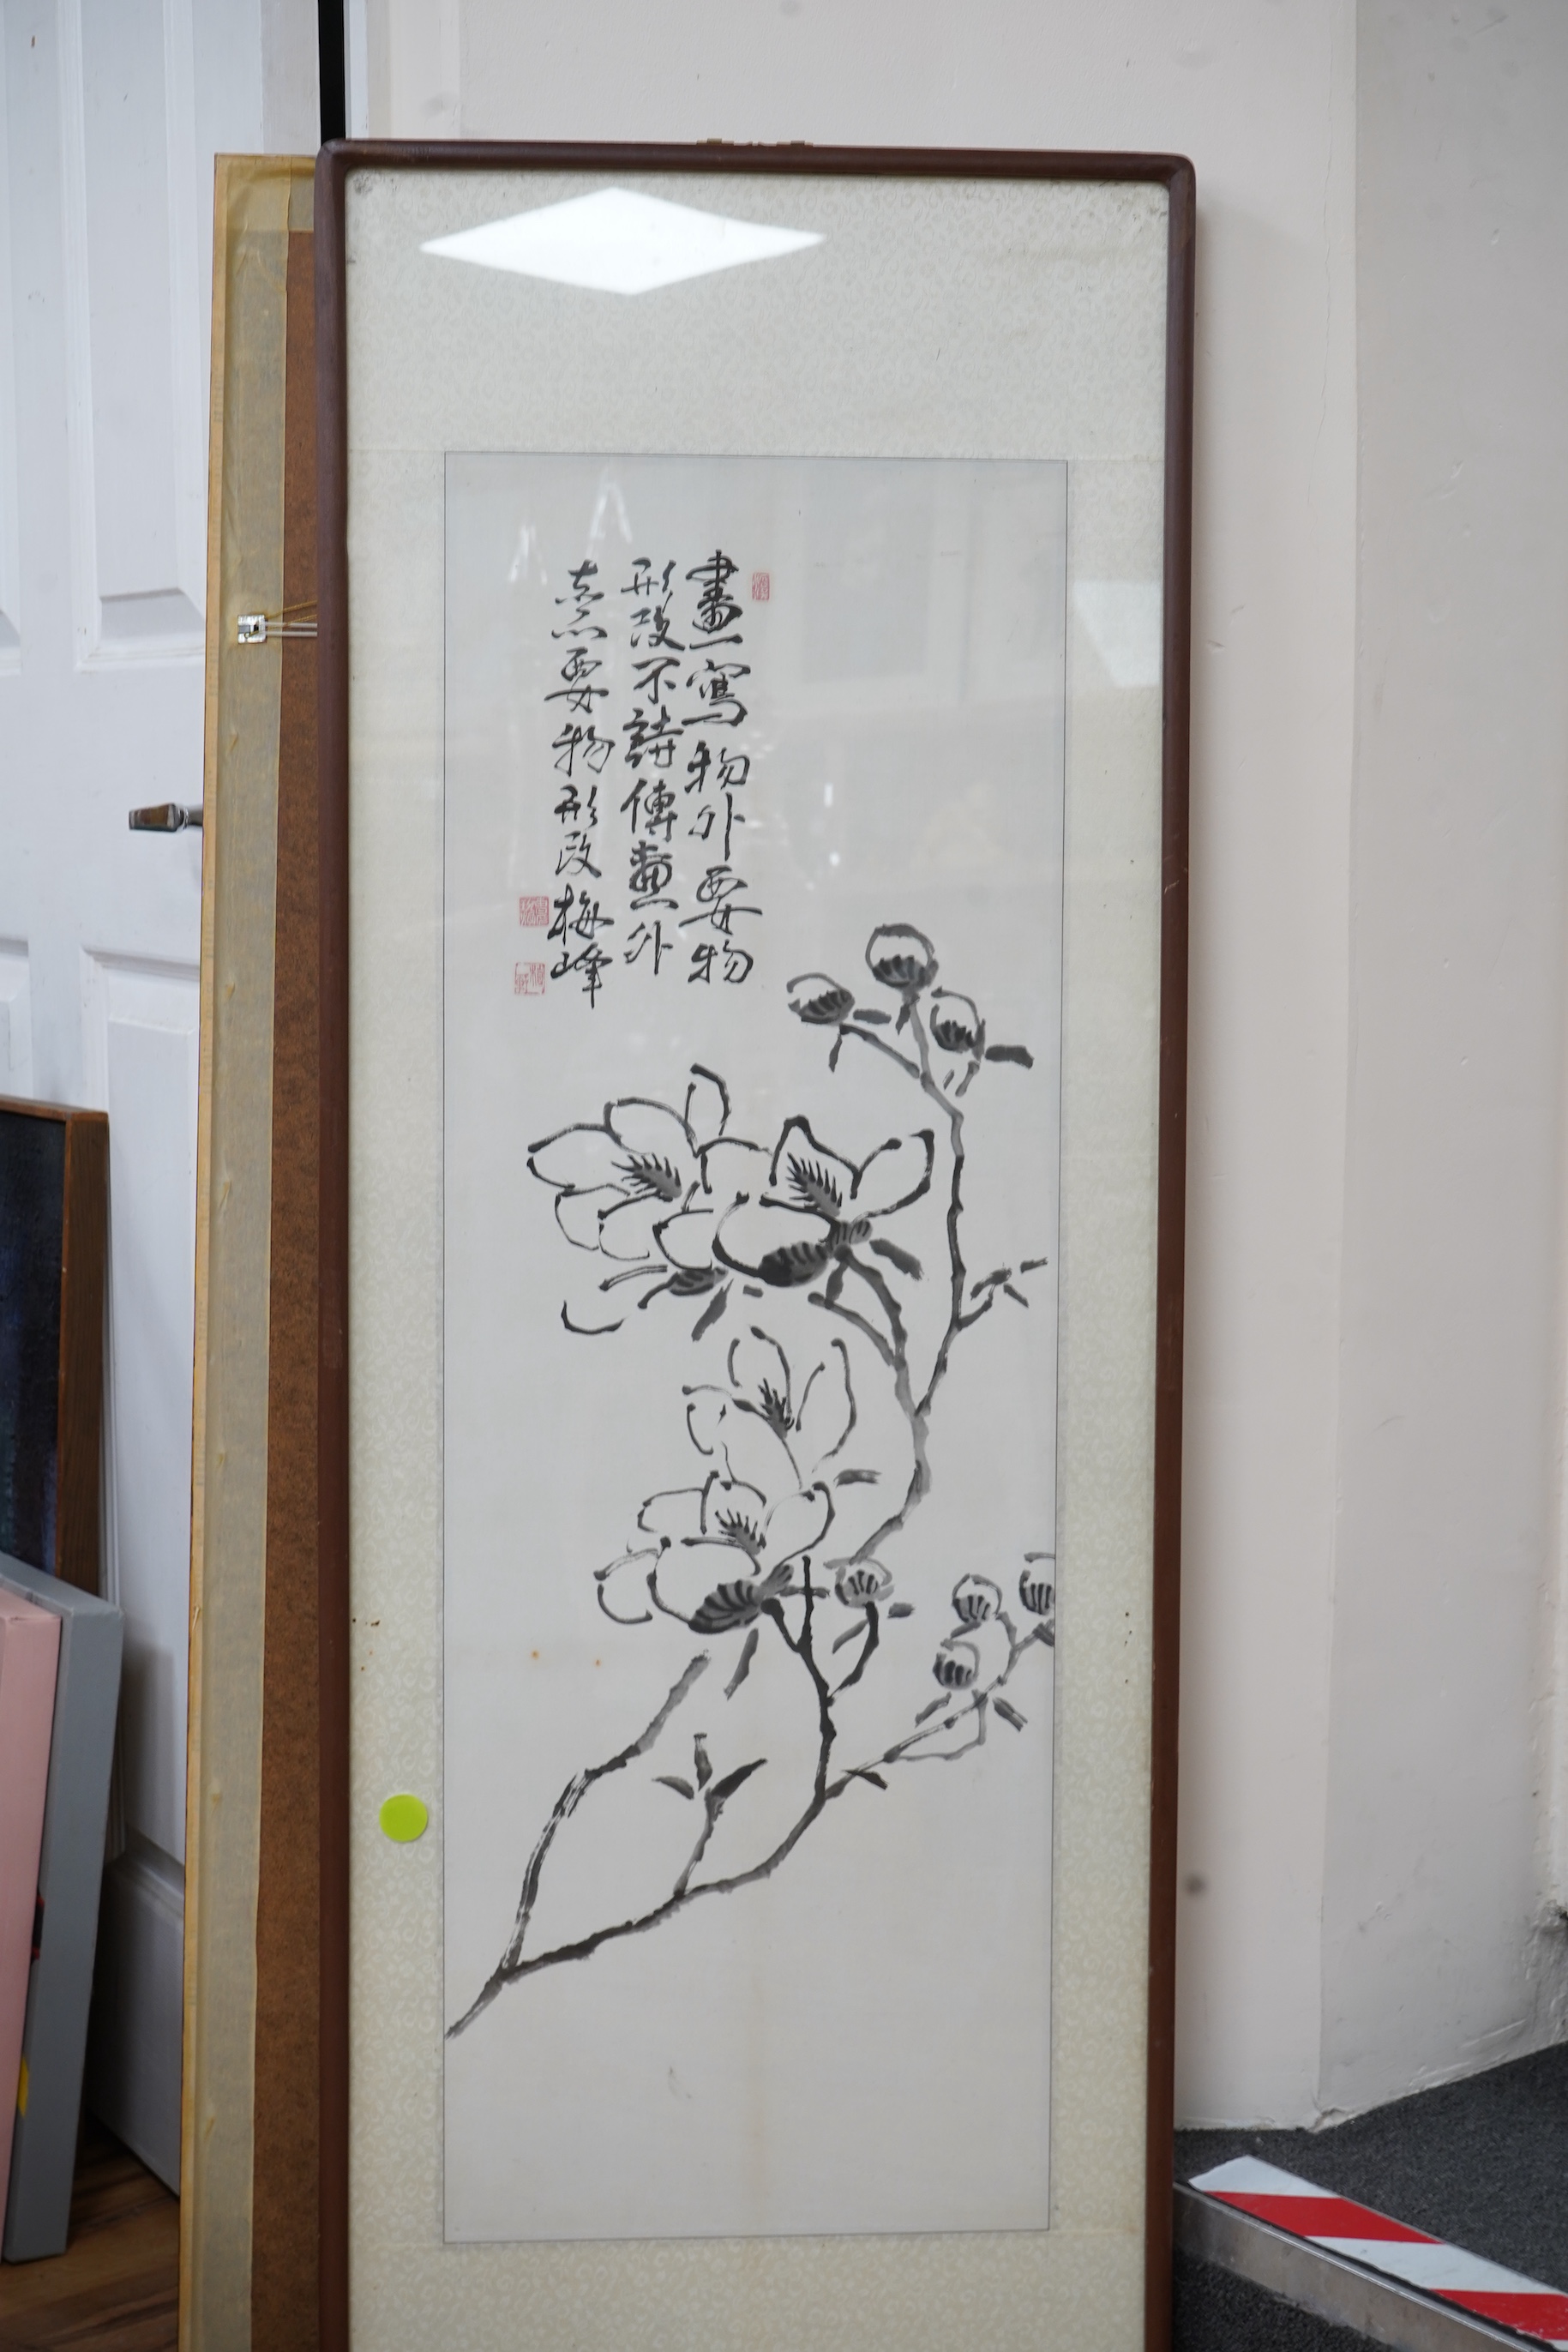 畫寫物外要物
形改不詩傳畫外
意要物形改梅峰